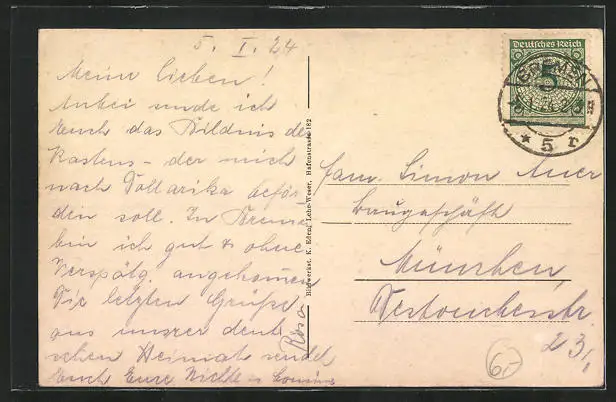 5. I. 24
Meine Lieben!
Anbei sende ich
Euch das Bildnis des
Kastens - der mich
nach Südamerika beför-
dern soll. In Bremen
bin ich gut & ohne
Verspätg. angekommen
Die letzten Grüße
aus unserer deut
schen Heimat sendet
Euch Eure Nichte u. Cousine
Rosa
Bildwerkst. K. Eden, Lehe-Weser, Hafenstrasse 182
Deutsches Reich
5
BREMEN
* 5 r
Fam. Simon Auer
Baugeschäft
München
23/I
6.-